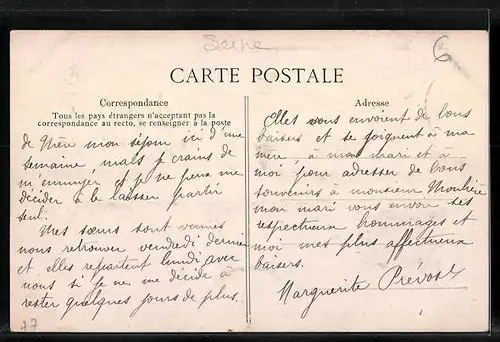 Seine
CARTE POSTALE
Correspondance
Tous les pays étrangers n'acceptant pas la
correspondance au recto, se renseigner à la poste
de mon séjour ici d'une
semaine, mais je crains de
m'ennuyer et je ne peux me
décider à le laisser partir
seul.
Mes sœurs sont venues
nous retrouver vendredi dernier
et elles repartent lundi avec
nous si je ne me décide à
rester quelques jours de plus.
77
Adresse
Elles vous envoient de bons
baisers et se joignent à ma
mère, à mon mari et à
moi pour adresser de bons
souvenirs à monsieur
mon mari vous envoie ses
respectueux hommages et
moi mes plus affectueux
baisers.
Marguerite Prévost